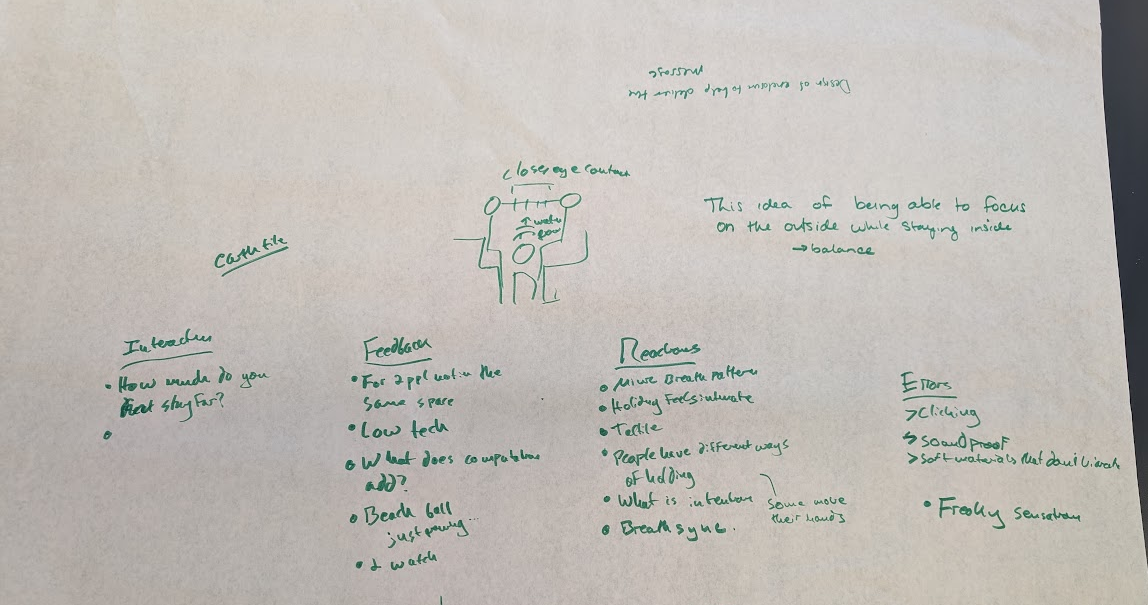 Design of enclosure to help deliver the
message
closer eye contact
This idea of being able to focus
on the outside while staying inside
→ balance
Interaction
• How much do you
stay far?
•
Feedback
• For 2 ppl not in the
same space
• Low tech
• What does computation
add?
• Beach ball
just
• watch
Reactions
• Breath pattern
• Holding feels intimate
• Tactile
• People have different ways
of holding
• What is intention
some move
their hands
• Breath sync.
Errors
> Clicking
> soundproof
> soft materials that don't vibrate
• Freaky sensation